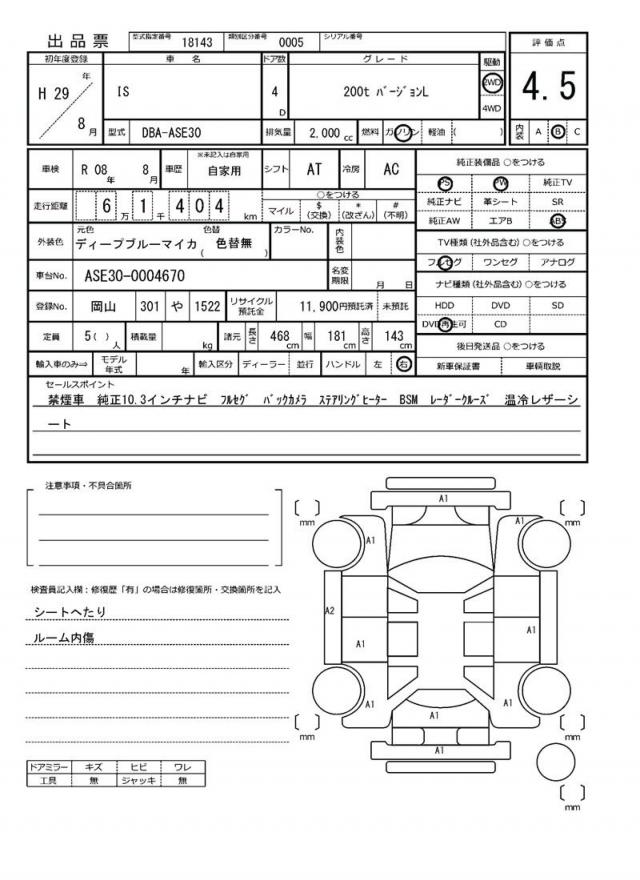 出品票 型式指定番号 18143 類別区分番号 0005 シリアル番号
評価点
4.5
内装 A B C
初年度登録 車名 ドア数 グレード 駆動
H 29 年 8 月
IS 4 D 200t バージョンL 2WD 4WD
型式 DBA-ASE30 排気量 2,000 cc 燃料 ガソリン 軽油 ( )
車検 R 08 年 8 月 車歴 ※未記入は自家用 自家用 シフト AT 冷房 AC
走行距離 6 万 1 千 4 0 4 km
○をつける
マイル $(交換) *(改ざん) #(不明)
外装色 元色 ディープブルーマイカ 色替 ( 色替無 ) カラーNo. 内装色
車台No. ASE30-0004670 名変期限 月 日
登録No. 岡山 301 や 1522 リサイクル預託金 11,900円預託済 未預託
定員 5( ) 人 積載量 kg 諸元 長さ 468 cm 幅 181 cm 高さ 143 cm
輸入車のみ⇒ モデル年式 年 輸入区分 ディーラー 並行 ハンドル 左 右
純正装備品 ○をつける
PS PW 純正TV
純正ナビ 革シート SR
純正AW エアB ABS
TV種類(社外品含む)○をつける
フルセグ ワンセグ アナログ
ナビ種類(社外品含む)○をつける
HDD DVD SD
DVD再生可 CD
後日発送品 ○をつける
新車保証書 車輌取説
セールスポイント
禁煙車 純正10.3インチナビ フルセグ バックカメラ ステアリングヒーター BSM レーダークルーズ 温冷レザーシ
ート
注意事項・不具合箇所
検査員記入欄：修復歴「有」の場合は修復箇所・交換箇所を記入
シートへたり
ルーム内傷
ドアミラー キズ ヒビ ワレ
工具 無 ジャッキ 無
A1
[ ] mm
[ ] mm
A1
A1
A2
A1
A1
A1
A1
A1
[ ] mm
[ ] mm
A1
[ ] mm